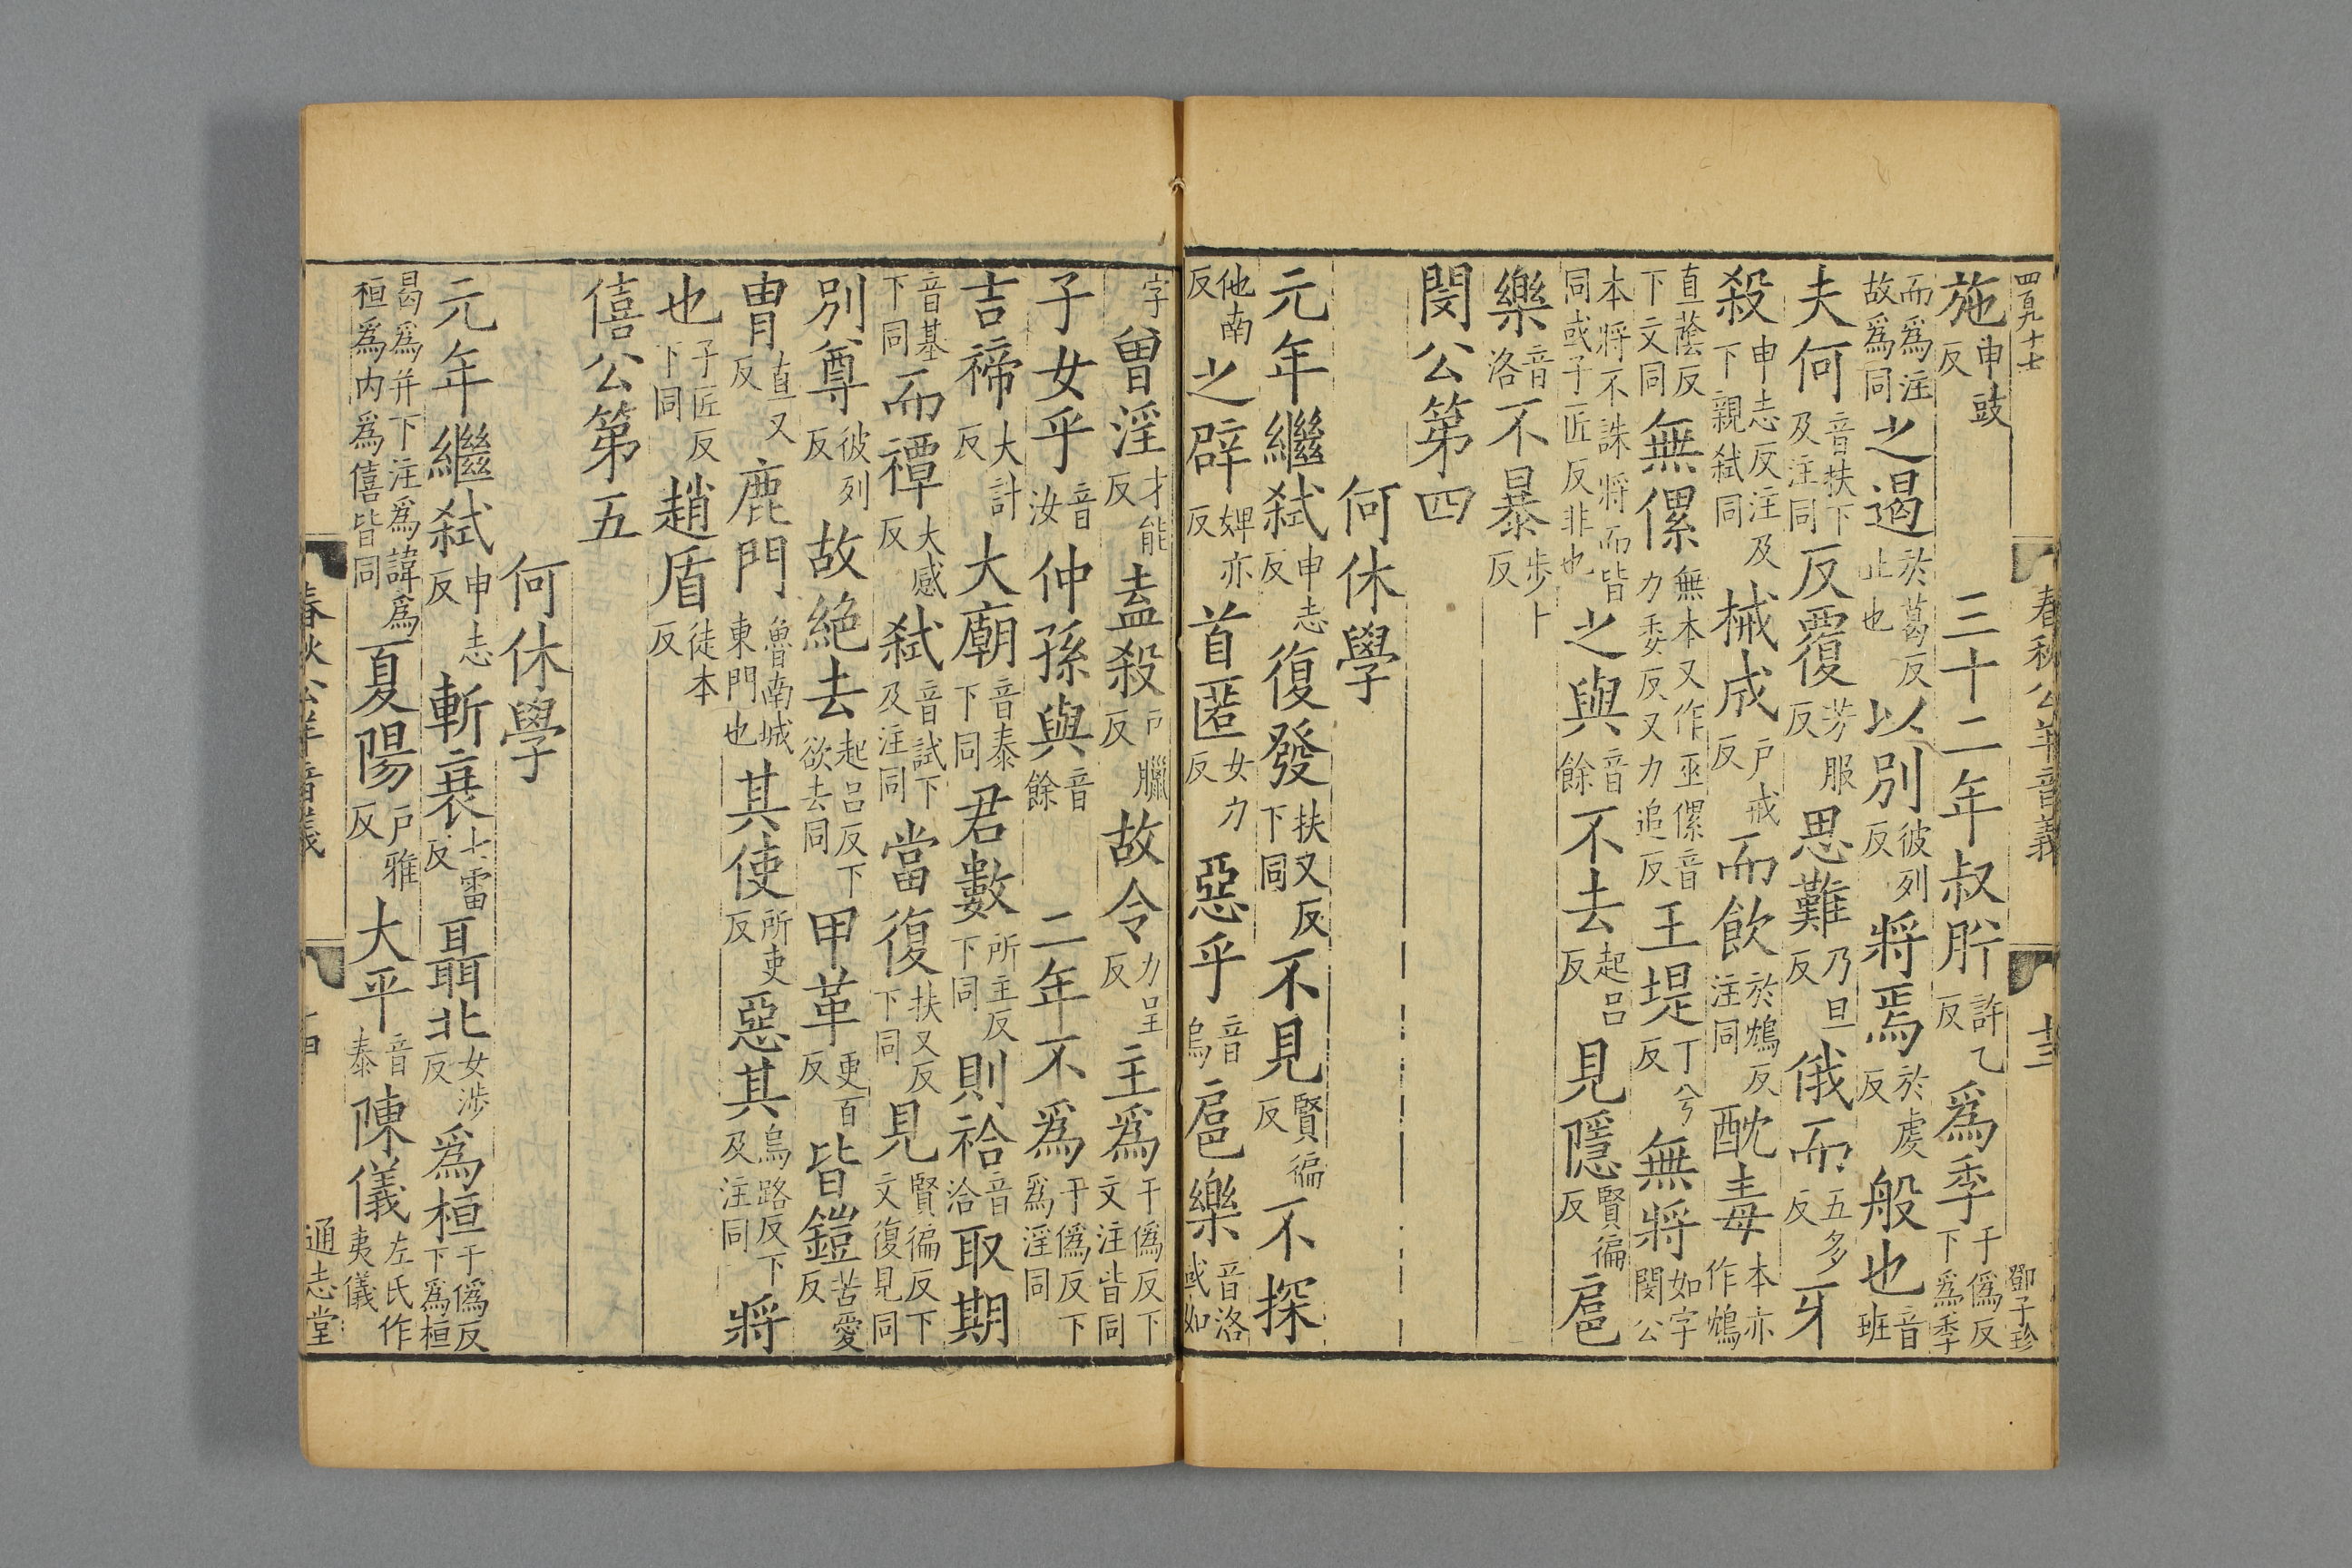 四百九十七 春秋公羊音義 十三 鄧子珍
施申豉反 三十二年叔肸許乙反爲季于僞反下爲季
而爲注故爲同之遏於葛反止也以別彼列反將焉於虔反般也音班
夫何音扶下及注同反覆芳服反思難乃旦反俄而五多反牙
殺申志反注及下親弒同械成户戒反而飲於鴆反注同酖毒本亦作鴆
直蔭反下文同無傫無本又作巫傫音力委反又力追反王堤丁兮反無將如字閔公
本將不誅將而皆同或子匠反非也之與音餘不去起吕反見隱賢徧反扈
樂音洛不暴步卜反
閔公第四
何休學
元年繼弒申志反復發扶又反下同不見賢徧反不探
他南反之辟婢亦反首匿女力反惡乎音烏扈樂音洛或如
字曾淫才能反盍殺户臘反故令力呈反主爲于僞反下文注皆同
子女乎音汝仲孫與音餘 二年不爲于僞反下爲淫同
吉禘大計反大廟音泰下同君數所主反下同則祫音洽取期
音基下同而禫大感反弒音試下及注同當復扶又反下同見賢徧反下文復見同
別尊彼列反故絶去起吕反下欲去同甲革更百反皆鎧苦愛反
冑直又反鹿門魯南城東門也其使所吏反惡其烏路反下及注同將
也子匠反下同趙盾徒本反
僖公第五
何休學
元年繼弒申志反斬衰七雷反聶北女涉反爲桓于僞反下爲桓
曷爲并下注爲諱爲桓爲内爲僖皆同夏陽户雅反大平音泰陳儀左氏作夷儀
春秋公羊音義 十四 通志堂